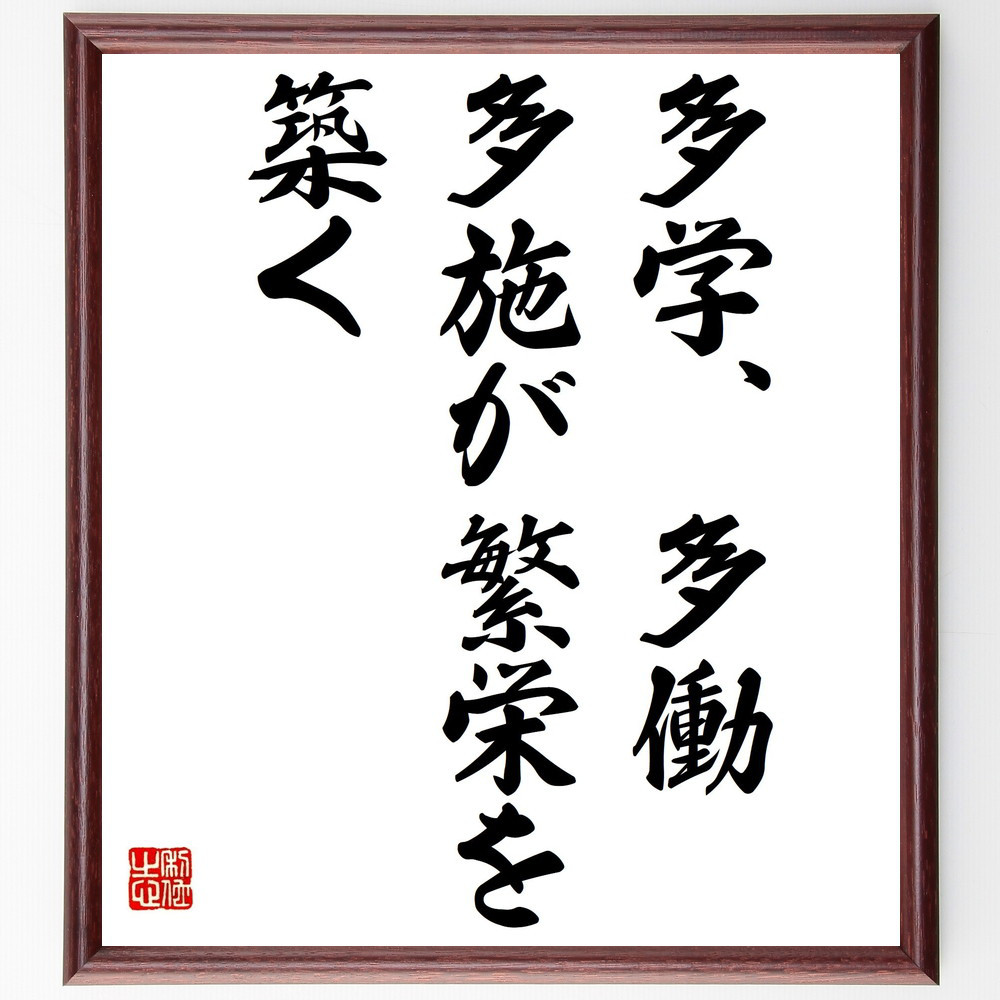 多学、　多働
多施が繁栄を
築く